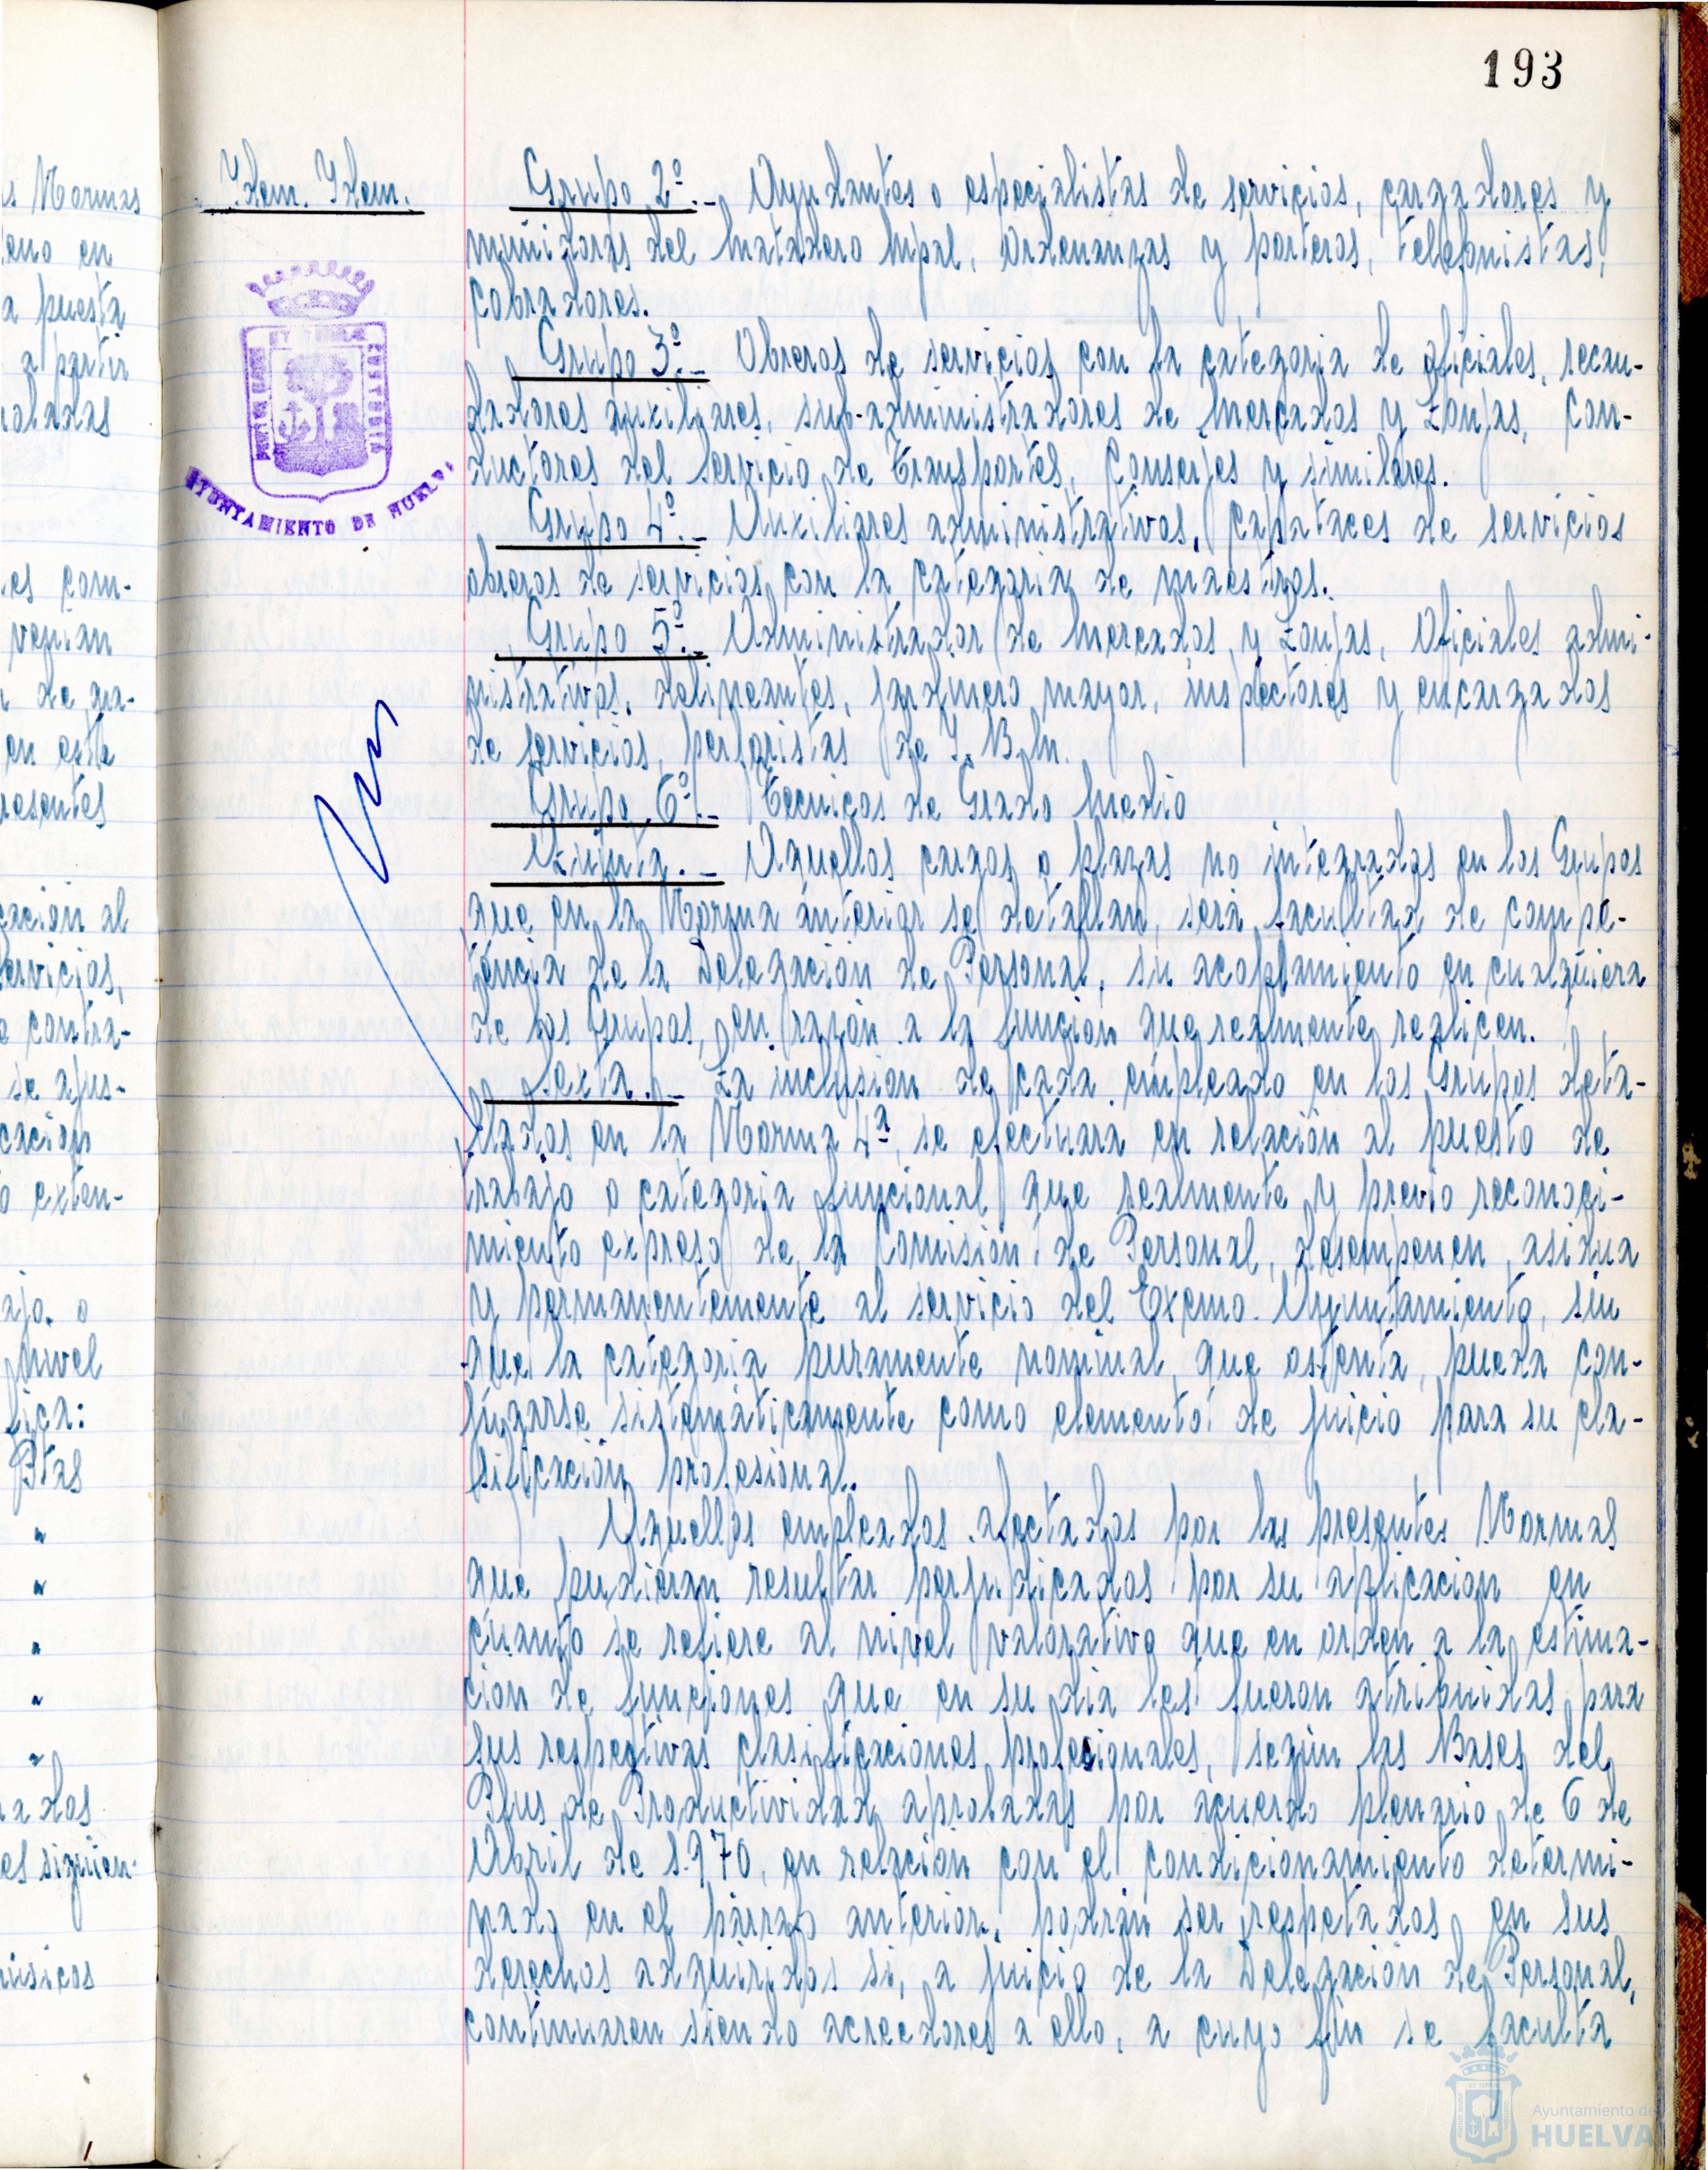 193
Idem. Idem.
Grupo 2º.- Ayudantes o especialistas de servicios, cargadores y
del Matadero Mpal, Ordenanzas y porteros, telefonistas,
cobradores.
Grupo 3º.- Obreros de servicios con la categoria de oficiales, recau-
dadores auxiliares, sub-administradores de Mercados y Lonjas, Con-
ductores del servicio de Transportes, Conserjes y similares.
Grupo 4º.- Auxiliares administrativos, capataces de servicios
obreros de servicios con la categoria de maestros.
Grupo 5º.- Administrador de Mercados y Lonjas, Oficiales admi-
nistrativos, delineantes, jardinero mayor, inspectores y encargados
de servicios, perforistas de I.B.M.
Grupo 6º.- Tecnicos de Grado Medio
Quinta.- Aquellos cargos o plazas no integrados en los Grupos
que en la Norma anterior se detallan, será facultad de compe-
tencia de la Delegación de Personal, su acoplamiento en cualquiera
de los Grupos, en razón a la función que realmente realicen.
Sexta.- La inclusión de cada empleado en los Grupos deta-
llados en la Norma 4ª, se efectuará en relación al puesto de
trabajo o categoria funcional que realmente y previo reconoci-
miento expreso de la Comisión de Personal, desempeñen, asidua
y permanentemente al servicio del Excmo. Ayuntamiento, sin
que la categoria puramente nominal que ostenta, pueda con-
jugarse sistemáticamente como elemento de juicio para su cla-
sificación profesional.
Aquellos empleados afectados por las presentes Normas
que pudieran resultar perjudicados por su aplicacion en
cuanto se refiere al nivel valorativo que en orden a la estima-
ción de funciones que en su dia les fueron atribuidas para
sus respectivas clasificaciones profesionales, según las Bases del
Plus de Productividad aprobadas por acuerdo plenario de 6 de
Abril de 1.970, en relación con el condicionamiento determi-
nado en el párrafo anterior, podrán ser respetados en sus
derechos adquiridos si, a juicio de la Delegación de Personal,
continuaren siendo acreedores a ello, a cuyo fin se faculta
AYUNTAMIENTO DE HUELVA
s Normas
eno en
a puesta
a partir
robadas
es com-
venian
de gra-
en esta
resentes
cación al
ervicios,
o contra-
se ajus-
cacion
o exten-
ajo o
nivel
fica:
Ptas
"
"
"
"
"
rados
es siguien-
músicos
Ayuntamiento de
HUELVA